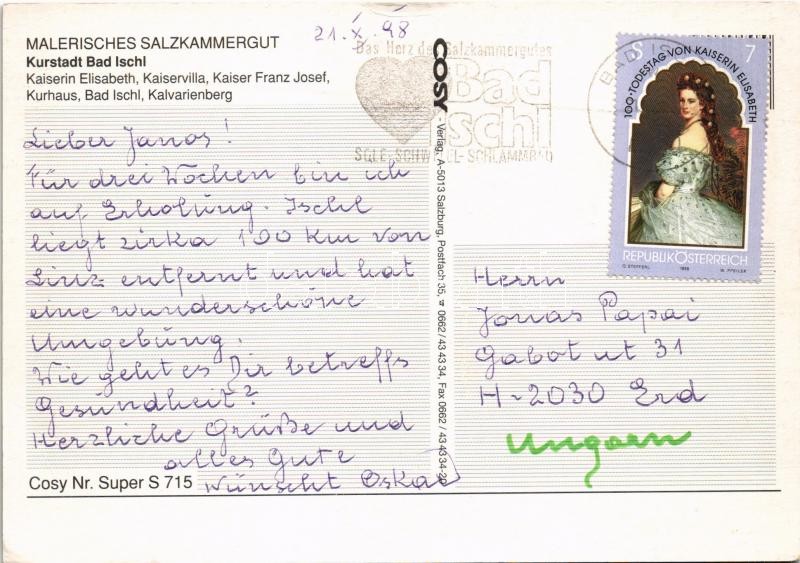 21.X.98
MALERISCHES SALZKAMMERGUT
Kurstadt Bad Ischl
Kaiserin Elisabeth, Kaiservilla, Kaiser Franz Josef,
Kurhaus, Bad Ischl, Kalvarienberg
Lieber Janos!
Für drei Wochen bin ich
auf Erholung. Ischl
liegt zirka 100 Km von
Linz entfernt und hat
eine wunderschöne
Umgebung.
Wie geht es Dir betreffs
Gesundheit?
Herzliche Grüße und
alles Gute
wünscht Oskar
Cosy Nr. Super S 715
COSY - Verlag, A-5013 Salzburg, Postfach 35, ☎ 0662/43 43 34, Fax 0662/43 43 34-20
Das Herz des Salzkammergutes
Bad
Ischl
SOLE-SCHWEFEL-SCHLAMMBAD
BAD IS
S 7
100. TODESTAG VON KAISERIN ELISABETH
REPUBLIK ÖSTERREICH
1998
Herrn
Jonas Papai
Gabot ut 31
H-2030 Erd
Ungarn